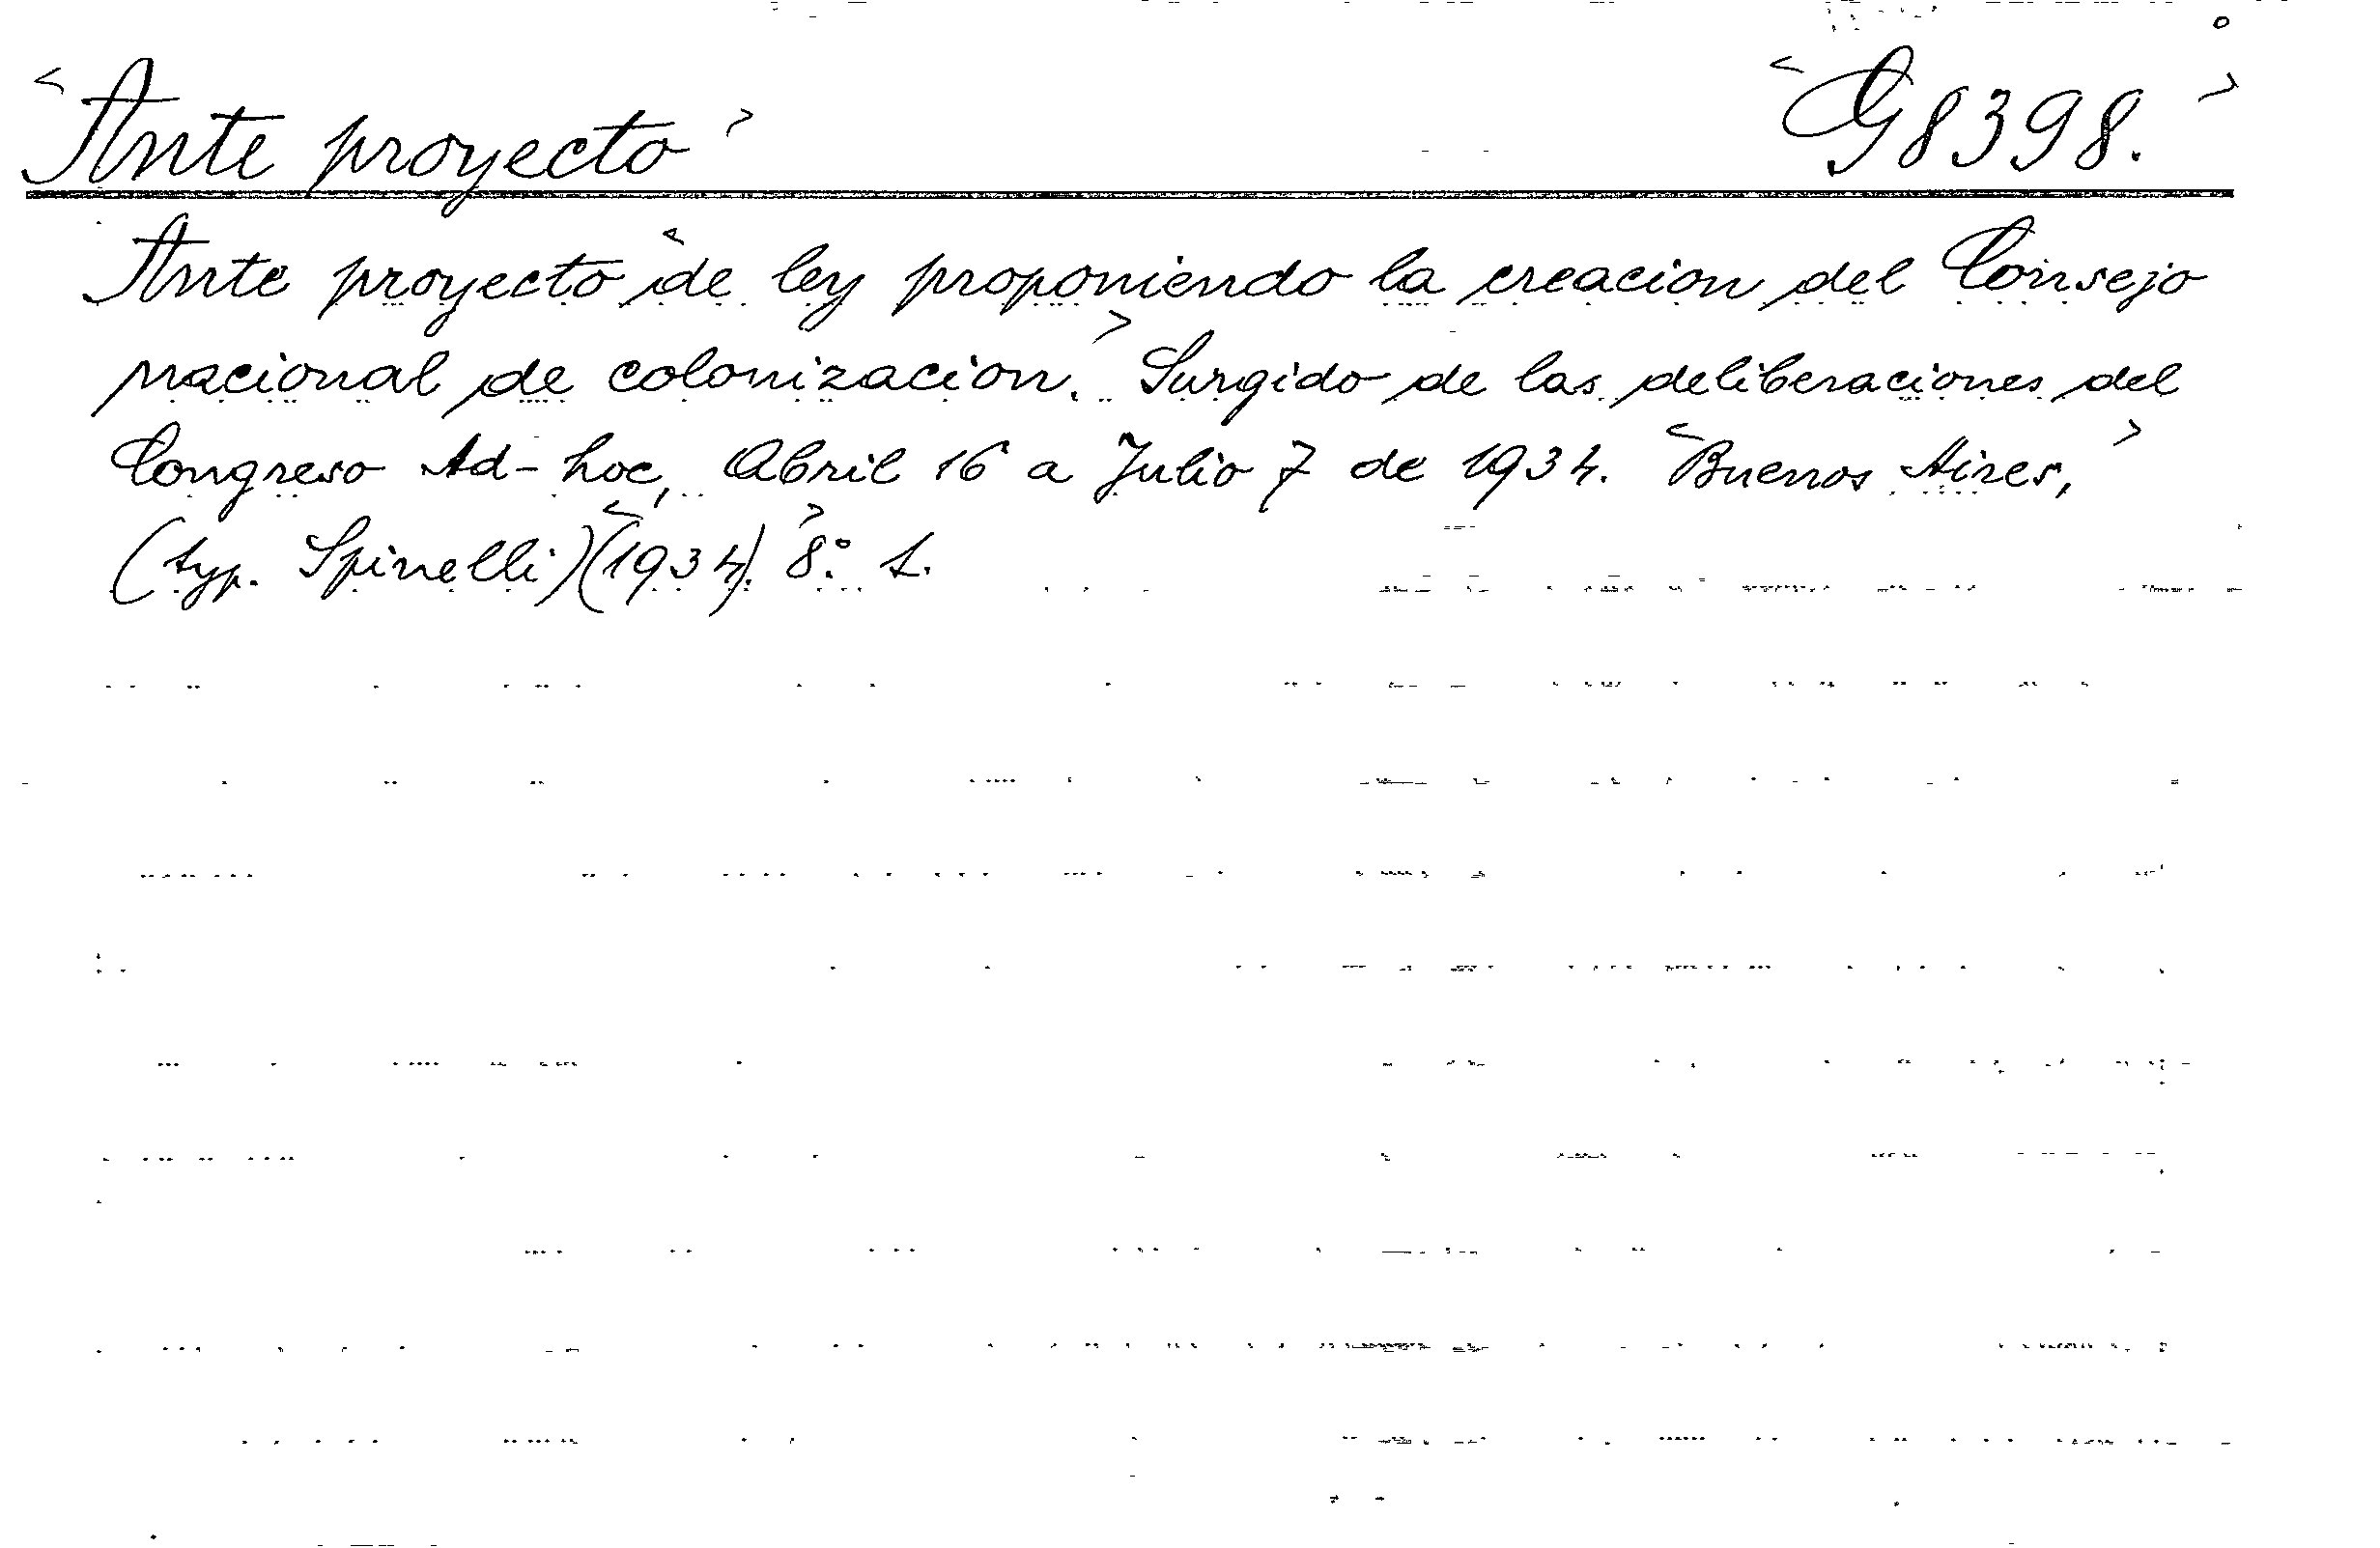 <Ante proyecto> <G8398.>
Ante proyecto <de ley proponiendo la creacion del Consejo
nacional de colonizacion.> Surgido de las deliberaciones del
Congreso Ad-hoc, Abril 16 a Julio 7 de 1934. <Buenos Aires,>
(typ. Spinelli) <(1934).> 8º. 1.